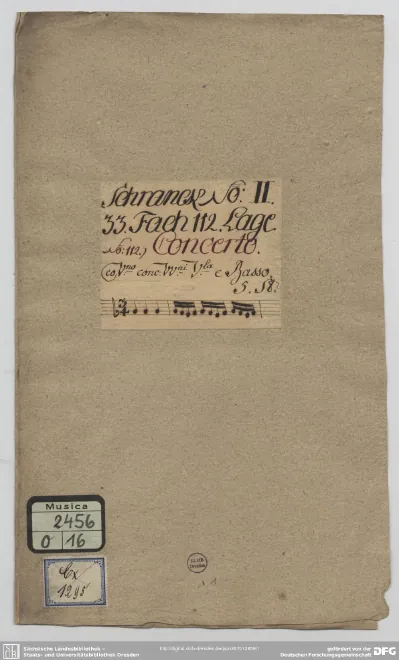 Schranck No: II.
33. Fach 112. Lage.
No: 112.) Concerto.
co. Vno conc. Wni Vla e Basso.
5. St:
3
4
Musica
2456
O 16
Cx
1295
Sächsische Landesbibliothek –
Staats- und Universitätsbibliothek Dresden
gefördert von der
Deutschen Forschungsgemeinschaft
DFG